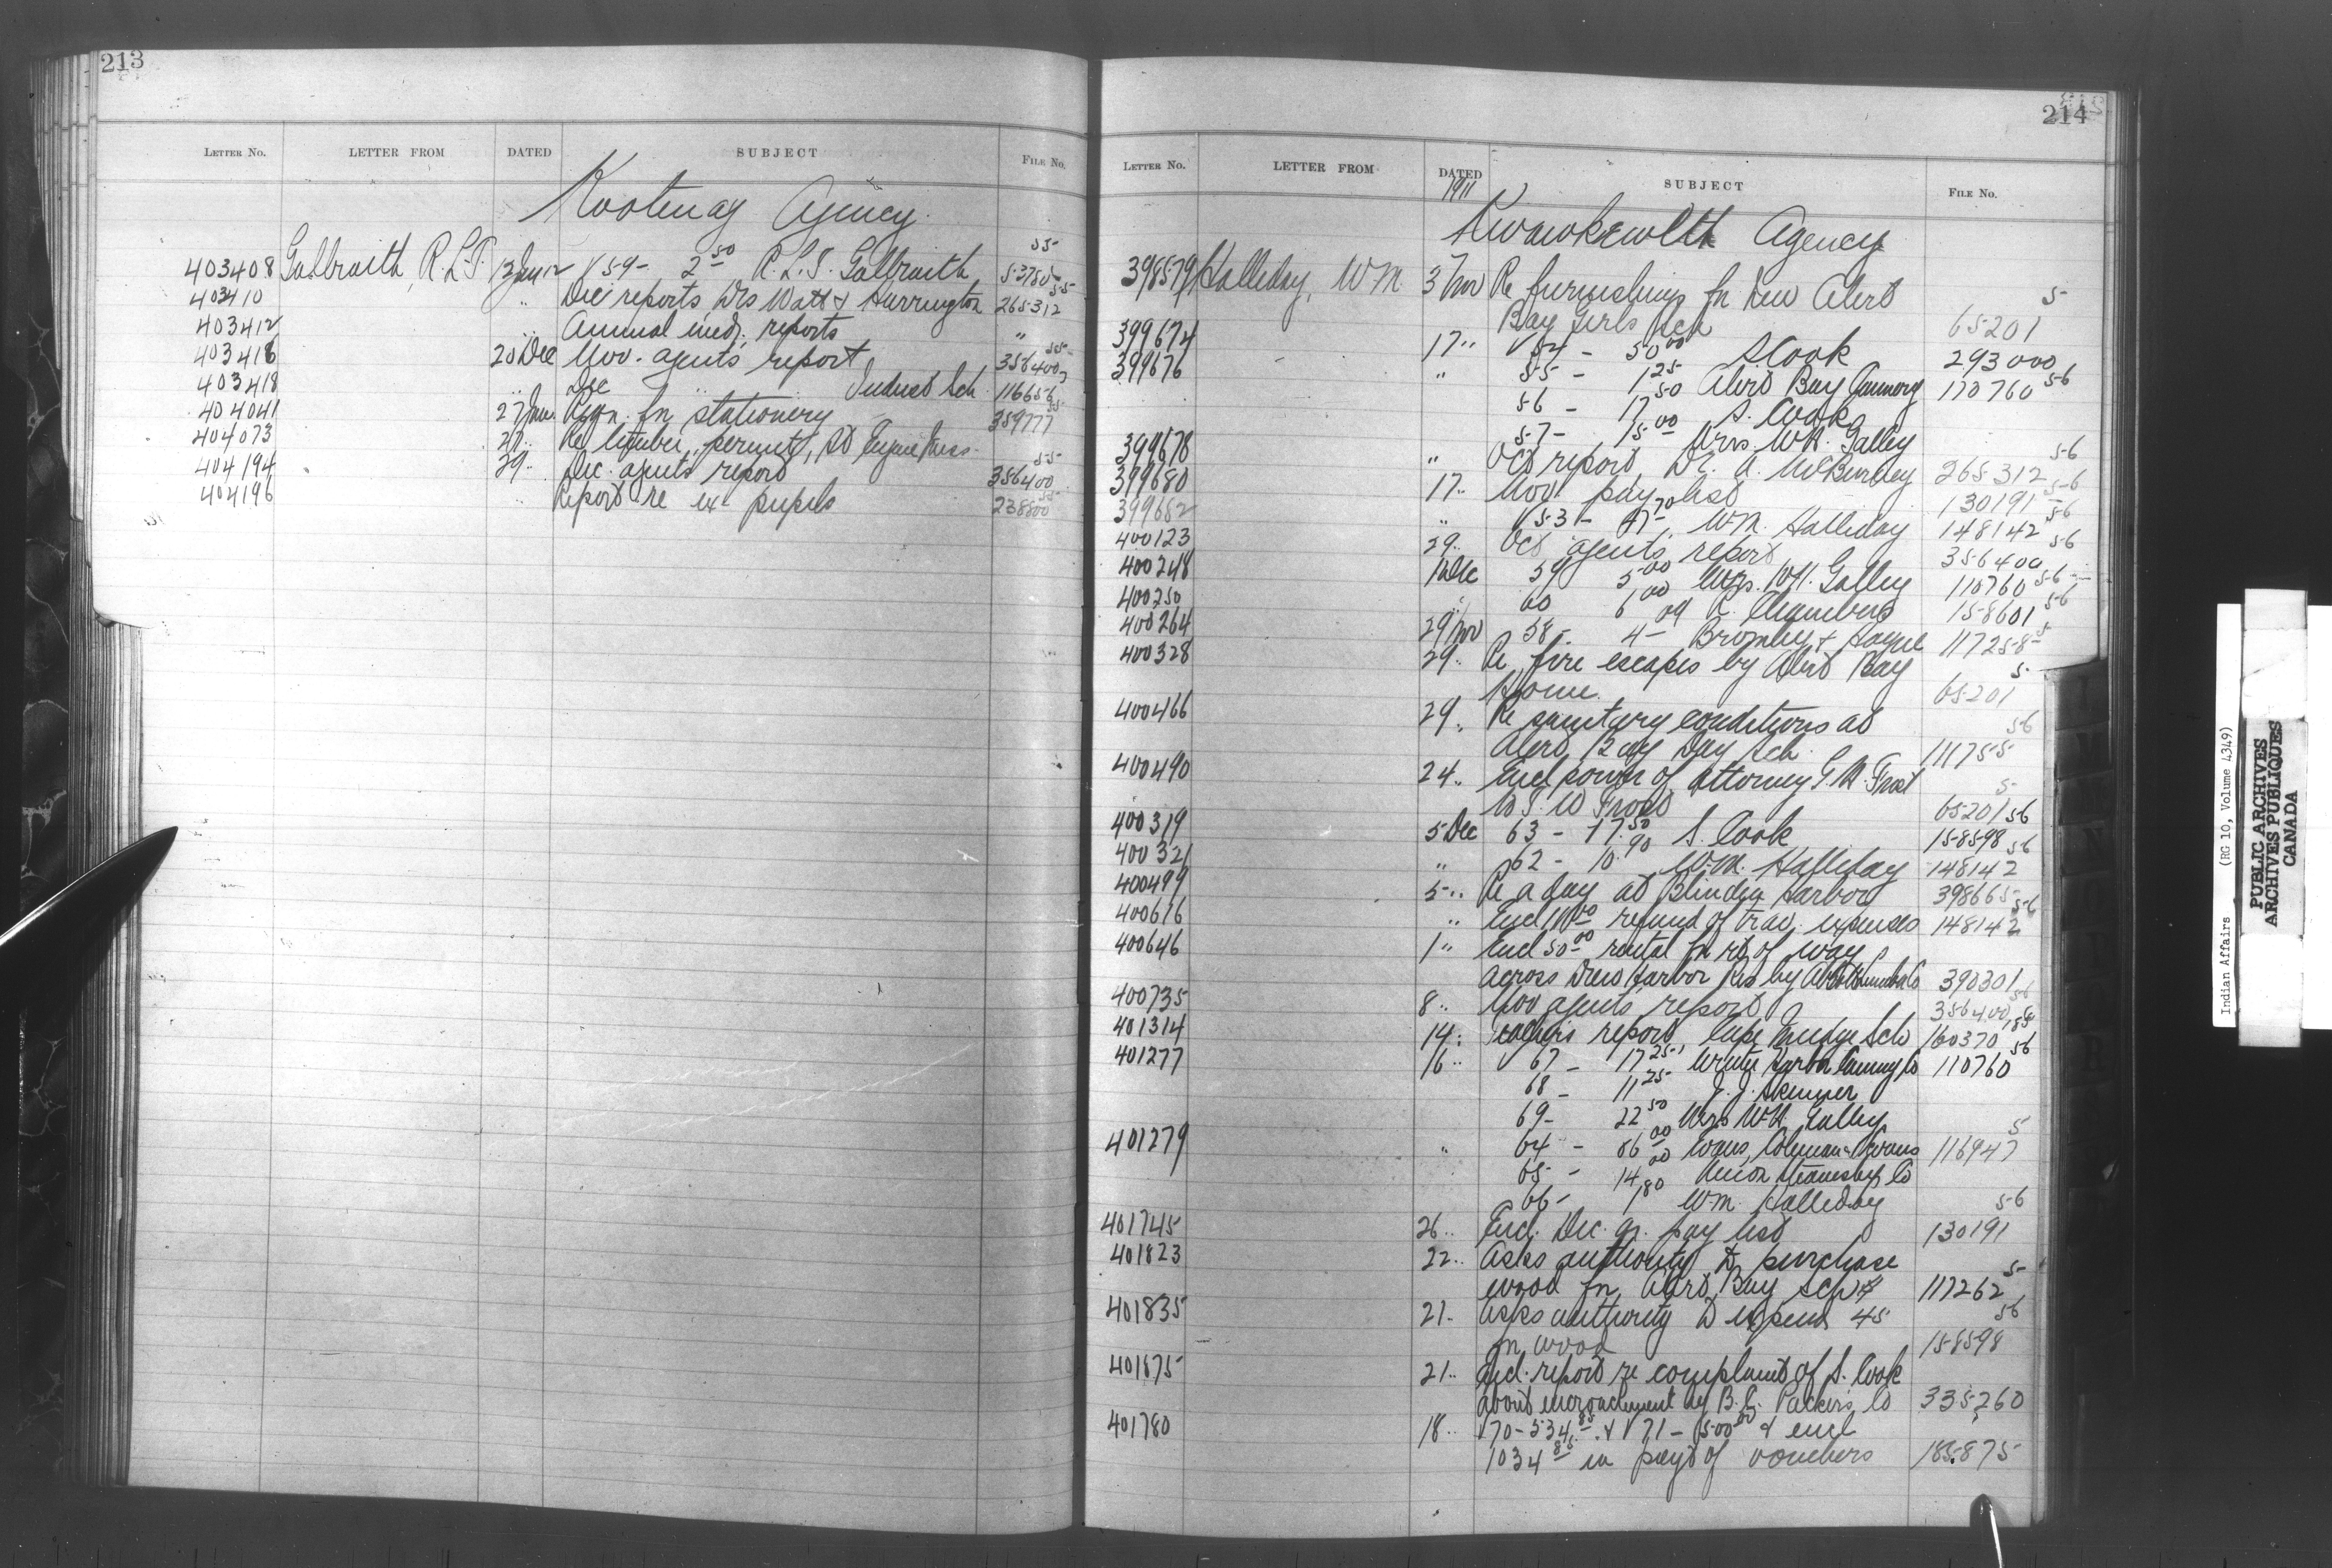 213
LETTER No. LETTER FROM DATED SUBJECT FILE No.
Kootenay Agency.
403408 Galbraith, R.L.T. 12 Jany 12 V 59 - 2 50 R.L.T. Galbraith 53780 55
403410 " Dec reports Drs Watt & Harrington 265312 55
403412 " Annual med. reports "
403416 20 Dec Nov. agents report 356400 55
403418 " Dec " Indust Sch 116656
404041 27 Jan. Reqn. for stationery 359777 55
404073 27 " Re timber permit, St Eugene Miss.
404194 29 " Dec. agents report 356400 55
404196 " Report re ex pupils 238800 55
214
LETTER No. LETTER FROM DATED SUBJECT FILE No.
1911
Kwawkewlth Agency
398579 Halliday, W.M. 3 Nov Re furnishings for new Alert
Bay Girls Sch 65201 5
399674 17 " V 54 - 50 00 S Cook 293000
399676 " 55 - 1 25 Alert Bay Cannery 110760 56
56 - 17 50 S. Cook
57 - 15 00 Mrs. W.H. Galley
399678 " Oct report, Dr. A. McBurney 265312 56
399680 17 " Nov. pay list 130191 56
399682 " V 53 - 47 70 W.M. Halliday 148142 56
400123 29 " Oct agents report 356400 56
400248 1 Dec 59 5 00 Mrs. W.H. Galley 110760 56
400250 " 60 6 00 R. Chambers 158601 56
400264 29 Nov 58 - 4 09 Bromley & 117258 5
400328 29 " Re fire escapes by Alert Bay
Home 65201 5
400466 29 " Re sanitary conditions at
Alert Bay Day Sch 111755 56
400490 24 " Encl power of attorney G.A. Frost
Frost 65201 5
400319 5 Dec 63 - 17 50 S. Cook 158598 56
400321 " 62 - 10 90 W.M. Halliday 148142 56
400499 5 " Re a day at Blinden Harbor 398665
400616 " Encl 11 00 refund of trav. expenses 148142 56
400646 1 " Encl 50 00 rental for rt of way
across Drew Harbor Res by Lumber Co 390301
400735 8 " Nov agents report 356400 56
401314 14 " Teachers report, Cape Mudge Sch 160370
401277 16 " 67 - 17 25 Winter Harbor Canning Co 110760 56
68 - 11 25 J. J. Skinner
69 - 22 50 Mrs W.H. Galley
401279 " 64 - 86 00 Evans, Coleman & Evans 116947 5
65 - 14 00 Union Steamship Co
66 - 1 80 W.M. Halliday
401745 26 " Encl. Dec. qr. pay list 130191 56
401823 22 " Asks authority to purchase
wood for Alert Bay sch 117262 5
401835 21 " Asks authority to expend 45
for wood 158598 56
401875 21 " Encl. report re complaint of S. Cook
about encroachment by B.C. Packers Co 335260
401780 18 " V 70 - 534 85 & V 71 - 500 00 & encl
1034 85 in payt of vouchers 185875
Indian Affairs (RG 10, Volume 4349)
PUBLIC ARCHIVES
ARCHIVES PUBLIQUES
CANADA